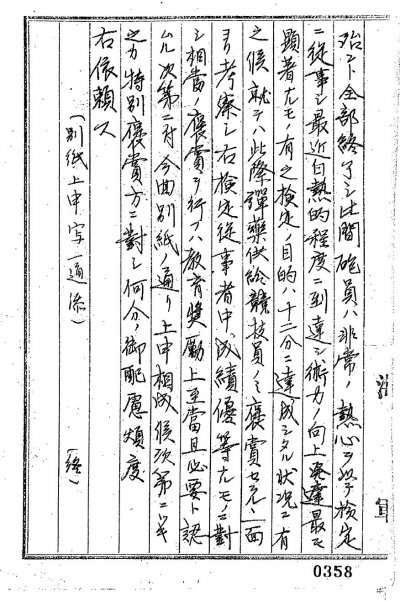 殆ント全部終了シ此間砲員ハ非常ノ熱心ヲ以テ検定
ニ従事シ最近白熱的程度ニ到達シ術力ノ向上発達最モ
顕著ナルモノ有之検定ノ目的ハ十二分ニ達成シタル状況ニ有
之候就テハ此際彈藥供給競技員ノミ褒賞セラレ一面
ヨリ考察シ右検定従事者中成績優等ナルモノニ對
シ相當ノ褒賞ヲ行フハ教育奬勵上至當且必要ト認
ムル次第ニ付今回別紙ノ通リ上申相成候次第ニ
之カ特別褒賞方ニ對シ何分ノ御配慮煩度
右依頼ス
（別紙上申写一通添）（終）
0358